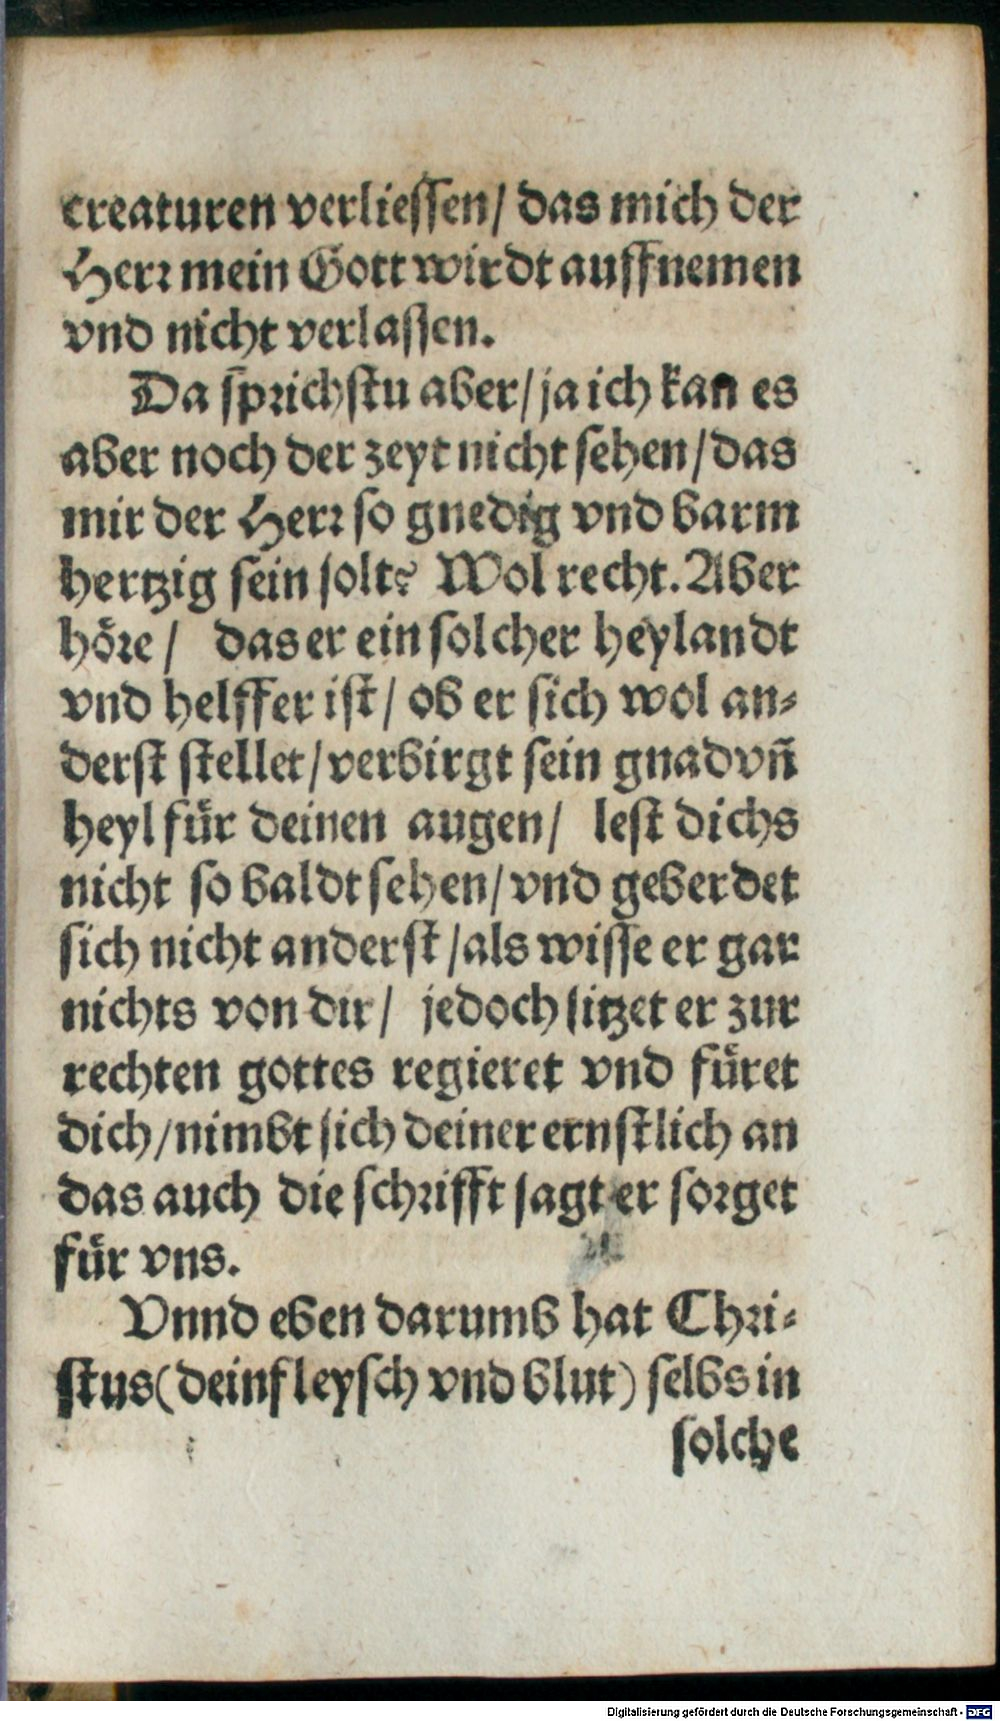 creaturen verliessen/ das mich der
Herr mein Gott wirdt auffnemen
vnd nicht verlassen.
Da sprichstu aber/ ja ich kan es
aber noch der zeyt nicht sehen/ das
mir der Herr so gnedig vnd barm
hertzig sein solt? Wol recht. Aber
höre/ das er ein solcher heylandt
vnd helffer ist/ ob er sich wol an⸗
derst stellet/ verbirgt sein gnad vñ
heyl für deinen augen/ lest dichs
nicht so baldt sehen/ vnd geberdet
sich nicht anderst/ als wisse er gar
nichts von dir/ jedoch sitzet er zur
rechten gottes regieret vnd füret
dich/ nimbt sich deiner ernstlich an
das auch die schrifft sagt er sorget
für vns.
Vnnd eben darumb hat Chri⸗
stus (dein fleysch vnd blut) selbs in
solche
Digitalisierung gefördert durch die Deutsche Forschungsgemeinschaft - DFG